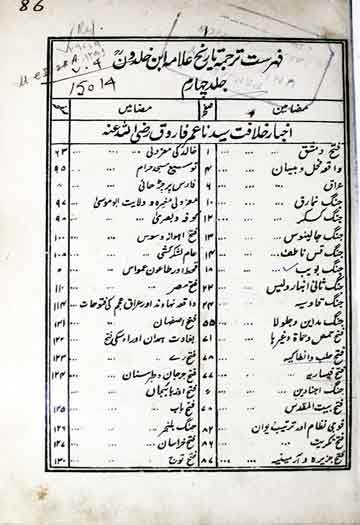 86
فہرست ترجمۂ تاریخ علامہ ابن خلدون
جلد چہارم
15014
مضامین
مضامین
اخبار خلافت سیدنا عمر فاروق رضی اللہ عنہ
فتح دمشق ... ۱
واقعہ فحل و بیسان ... ۴
عراق ... ۶
جنگ نمارق ... ۱۰
جنگ کسکر ... ۱۲
جنگ جالینوس ... ۱۳
جنگ قس ناطف ... ۱۴
جنگ بویب ... ۱۸
جنگ ثانی انبار والیس ... ۲۲
جنگ قادسیہ ... ۲۴
جنگ مداین و جلولا ... ۵۵
فتح حمص و حماۃ وغیرہا ... ۷۱
فتح حلب و انطاکیہ ... ۷۳
فتح قیساریہ
جنگ اجنادین
فتح بیت المقدس ... ۷۸
فوجی نظام اور ترتیب دیوان ... ۸۲
فتح تکریت ... ۸۶
فتح جزیرہ و آرمینیہ ... ۸۷
خالد کی معزولی ... ۹۳
توسیع مسجد حرام ... ۹۵
فارس پر چڑھائی
معزولی مغیرہ و ولایت ابوموسیٰ ... ۹۷
کوفہ و بصرہ ... ۹۸
فتح اہواز و سوس ... ۱۰۰
عام لشکر کشی ... ۱۰۸
قحط اور طاعون عمواس
فتح مصر ... ۱۱۰
واقعہ نہاوند اور عراق عجم کی فتوحات ... ۱۱۴
فتح اصفہان ... ۱۲۱
بغاوت ہمدان اور اوسکی فتح ... ۱۲۲
فتح رے ... ۱۲۳
فتح جرجان و طبرستان ... ۱۲۴
فتح آذربائیجان
فتح باب ... ۱۲۵
جنگ بلنجر ... ۱۲۶
فتح خراسان ... ۱۲۷
فتح توج ... ۱۳۰